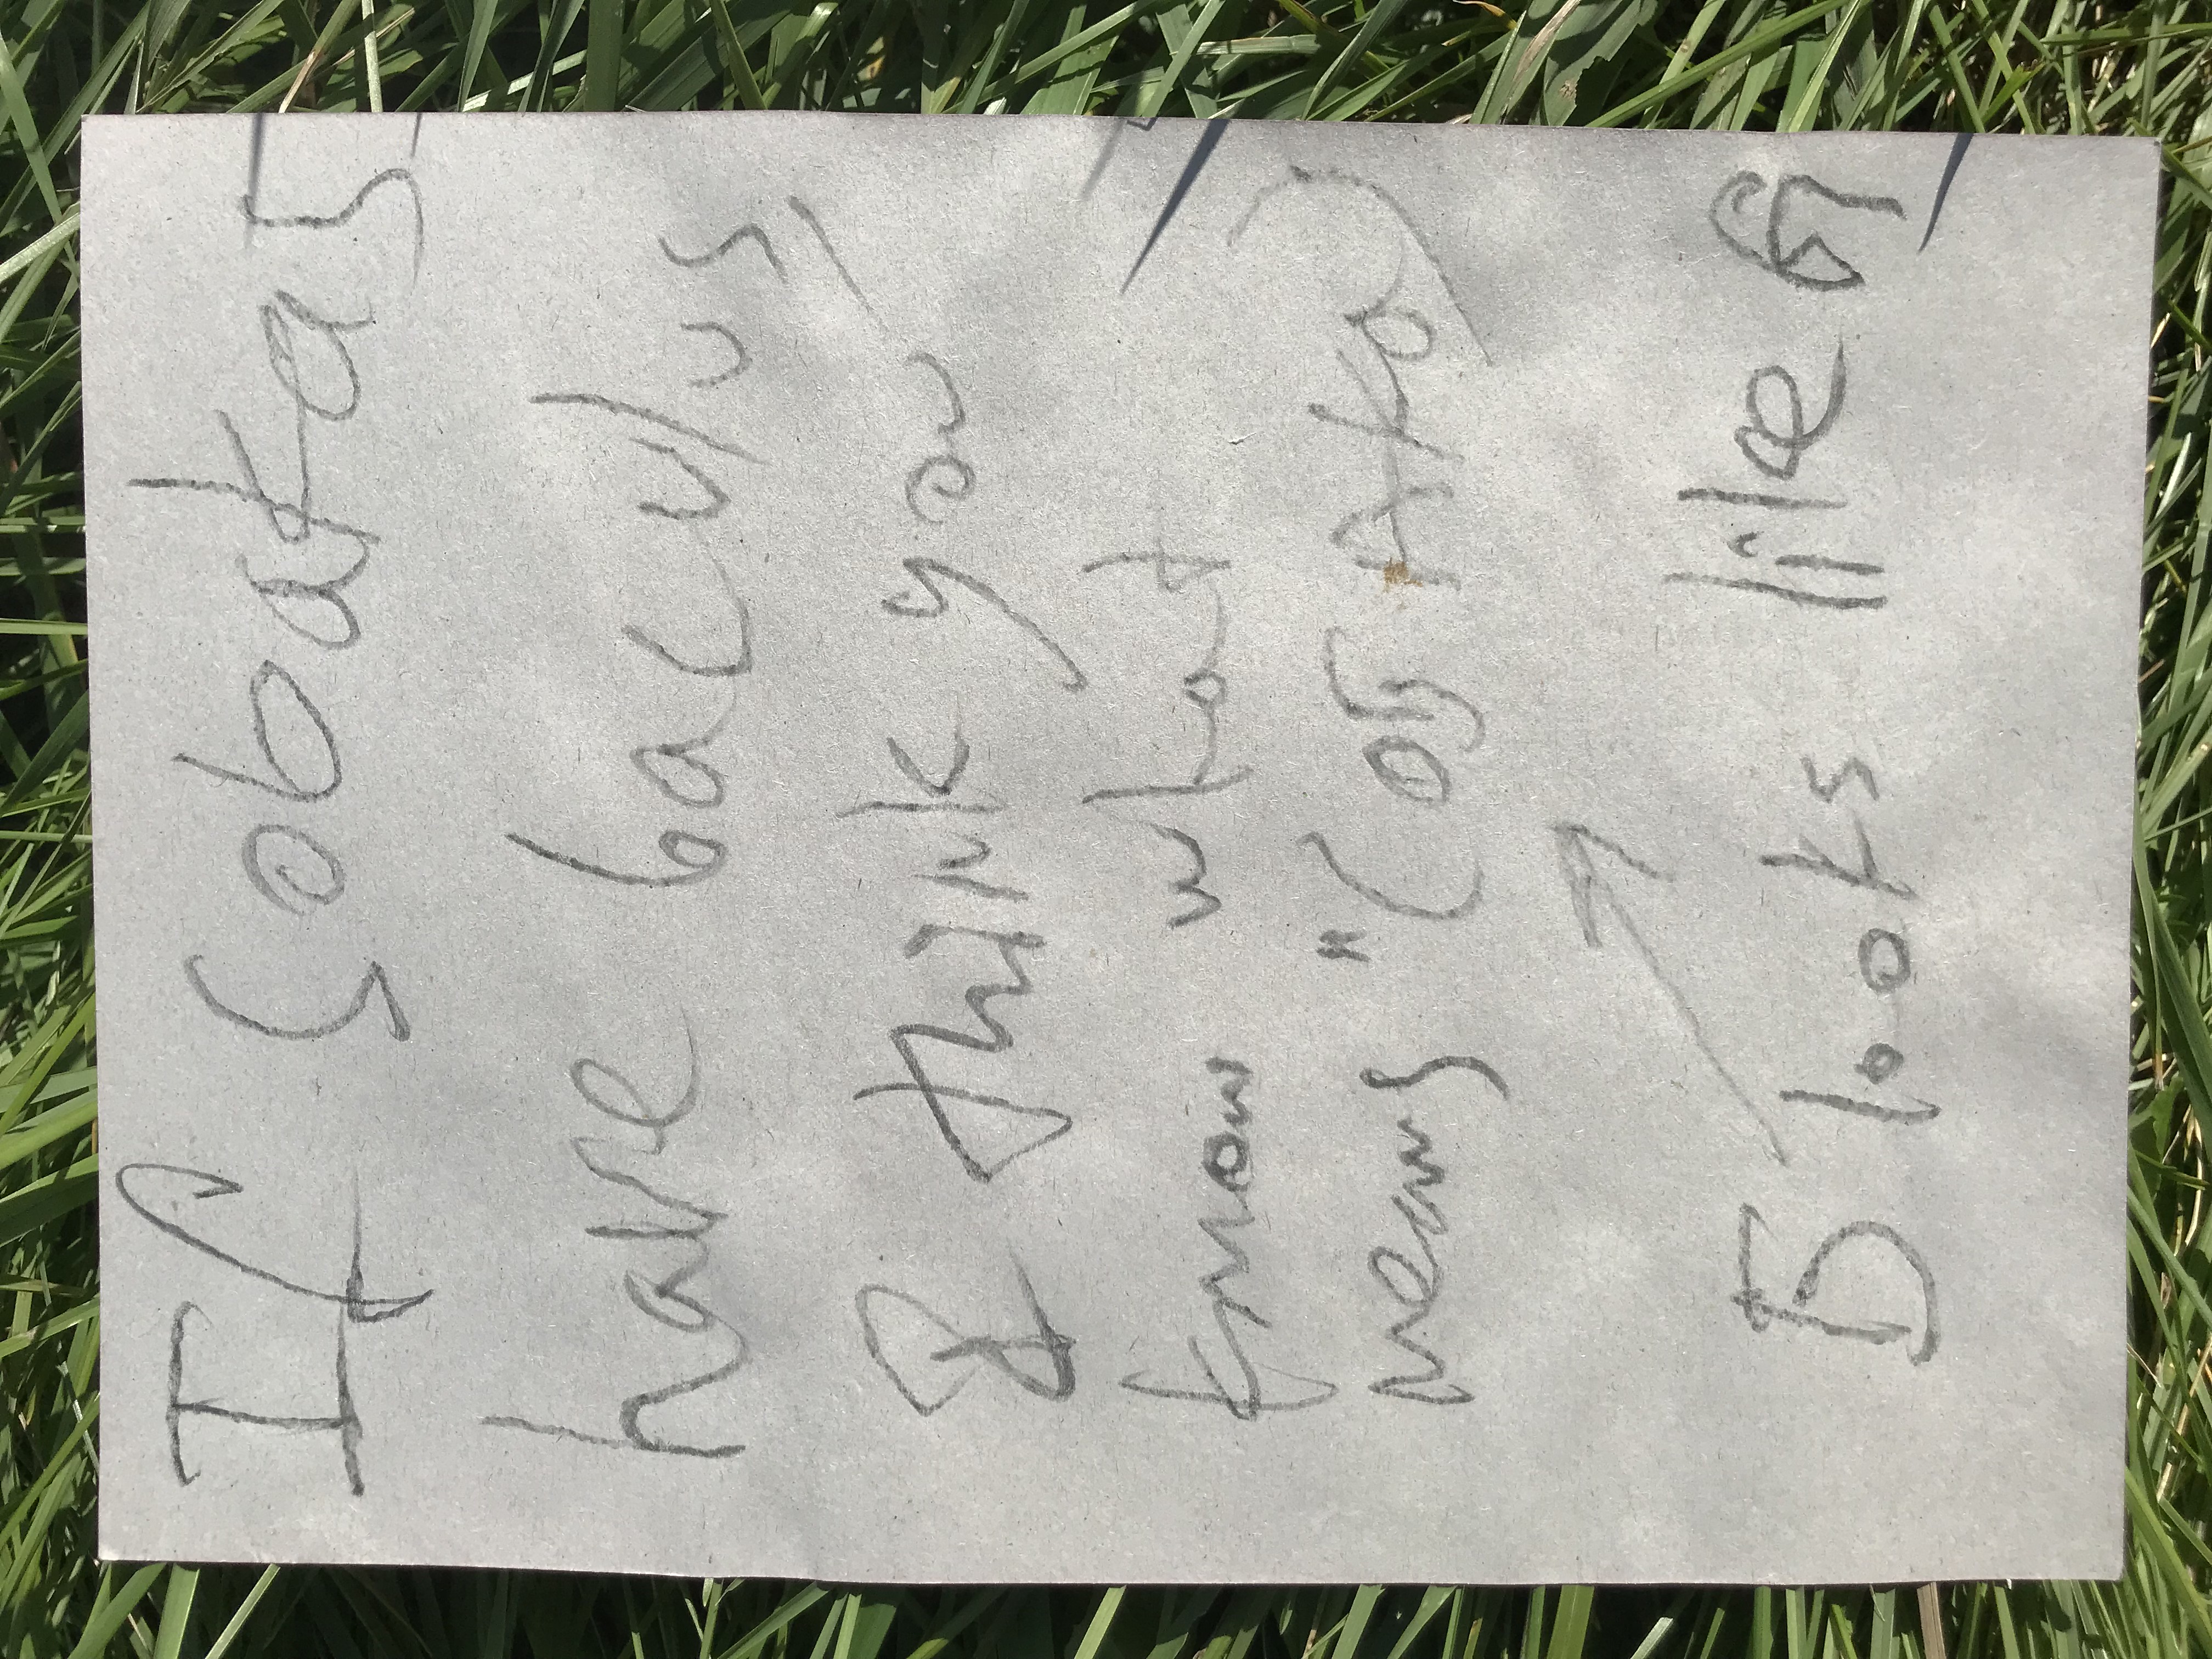 If sobakas
have baculus
I think you
know what
means "СОБАКА)
Б looks like